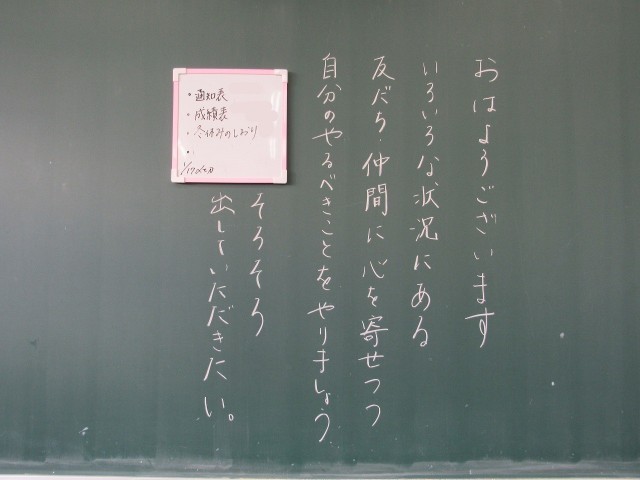 おはようございます
いろいろな状況にある
友だち・仲間に心を寄せつつ
自分のやるべきことをやりましょう
・通知表
・成績表
・冬休みのしおり
・
そろそろ
出していただきたい。